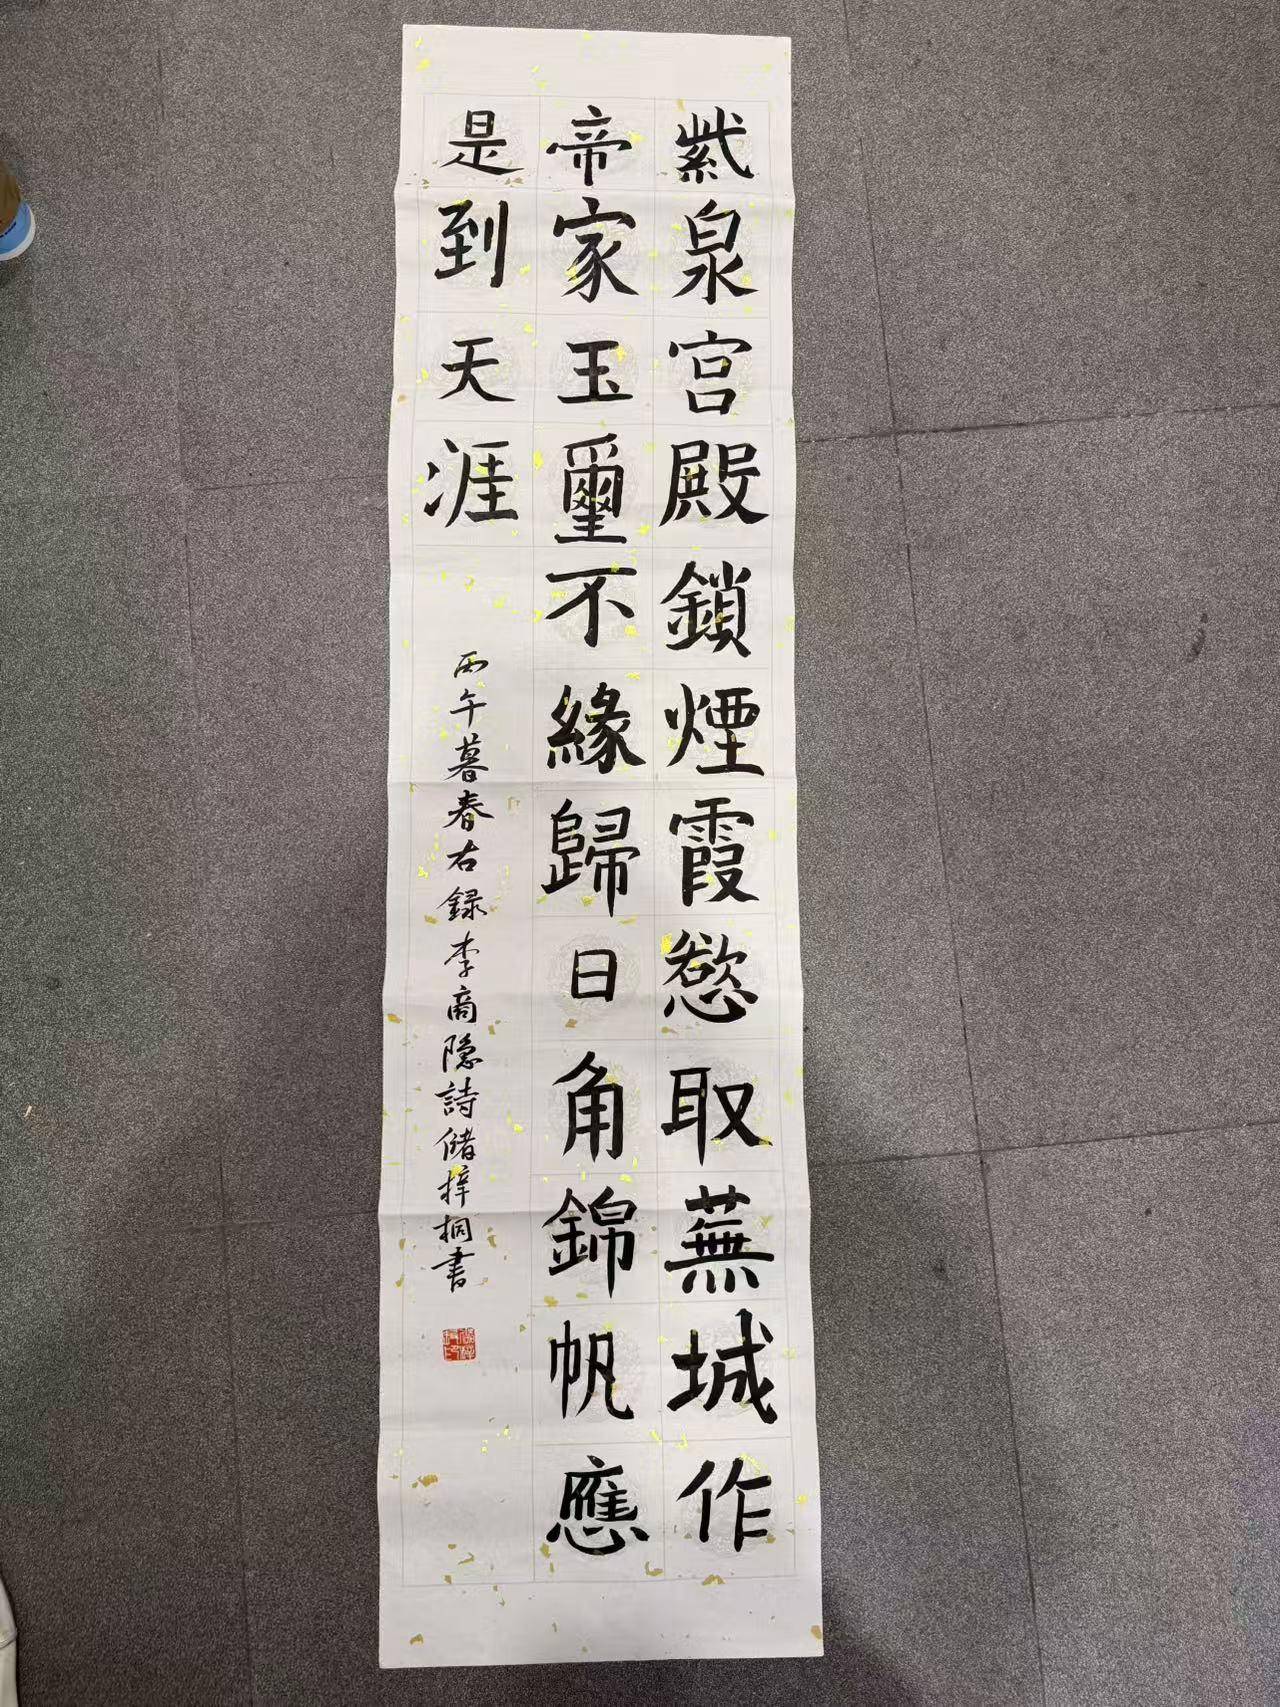 紫泉宫殿鎖煙霞慾取蕪城作
帝家玉璽不緣歸日角錦帆應
是到天涯
丙午暮春右録李商隐詩储梓桐書